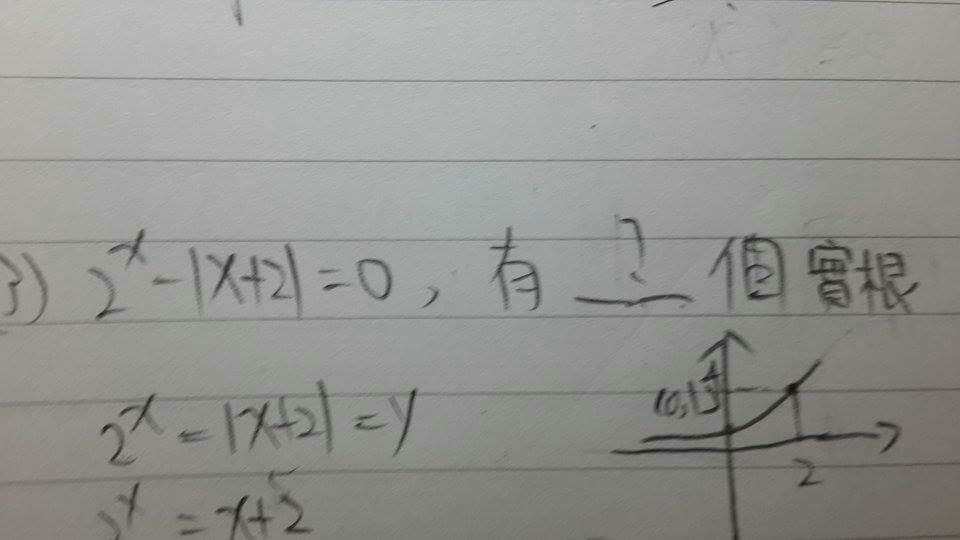 3) 2^x - |x+2| = 0 , 有 ? 個實根
2^x = |x+2| = y
(0,1)
4
2
2^x = x+2